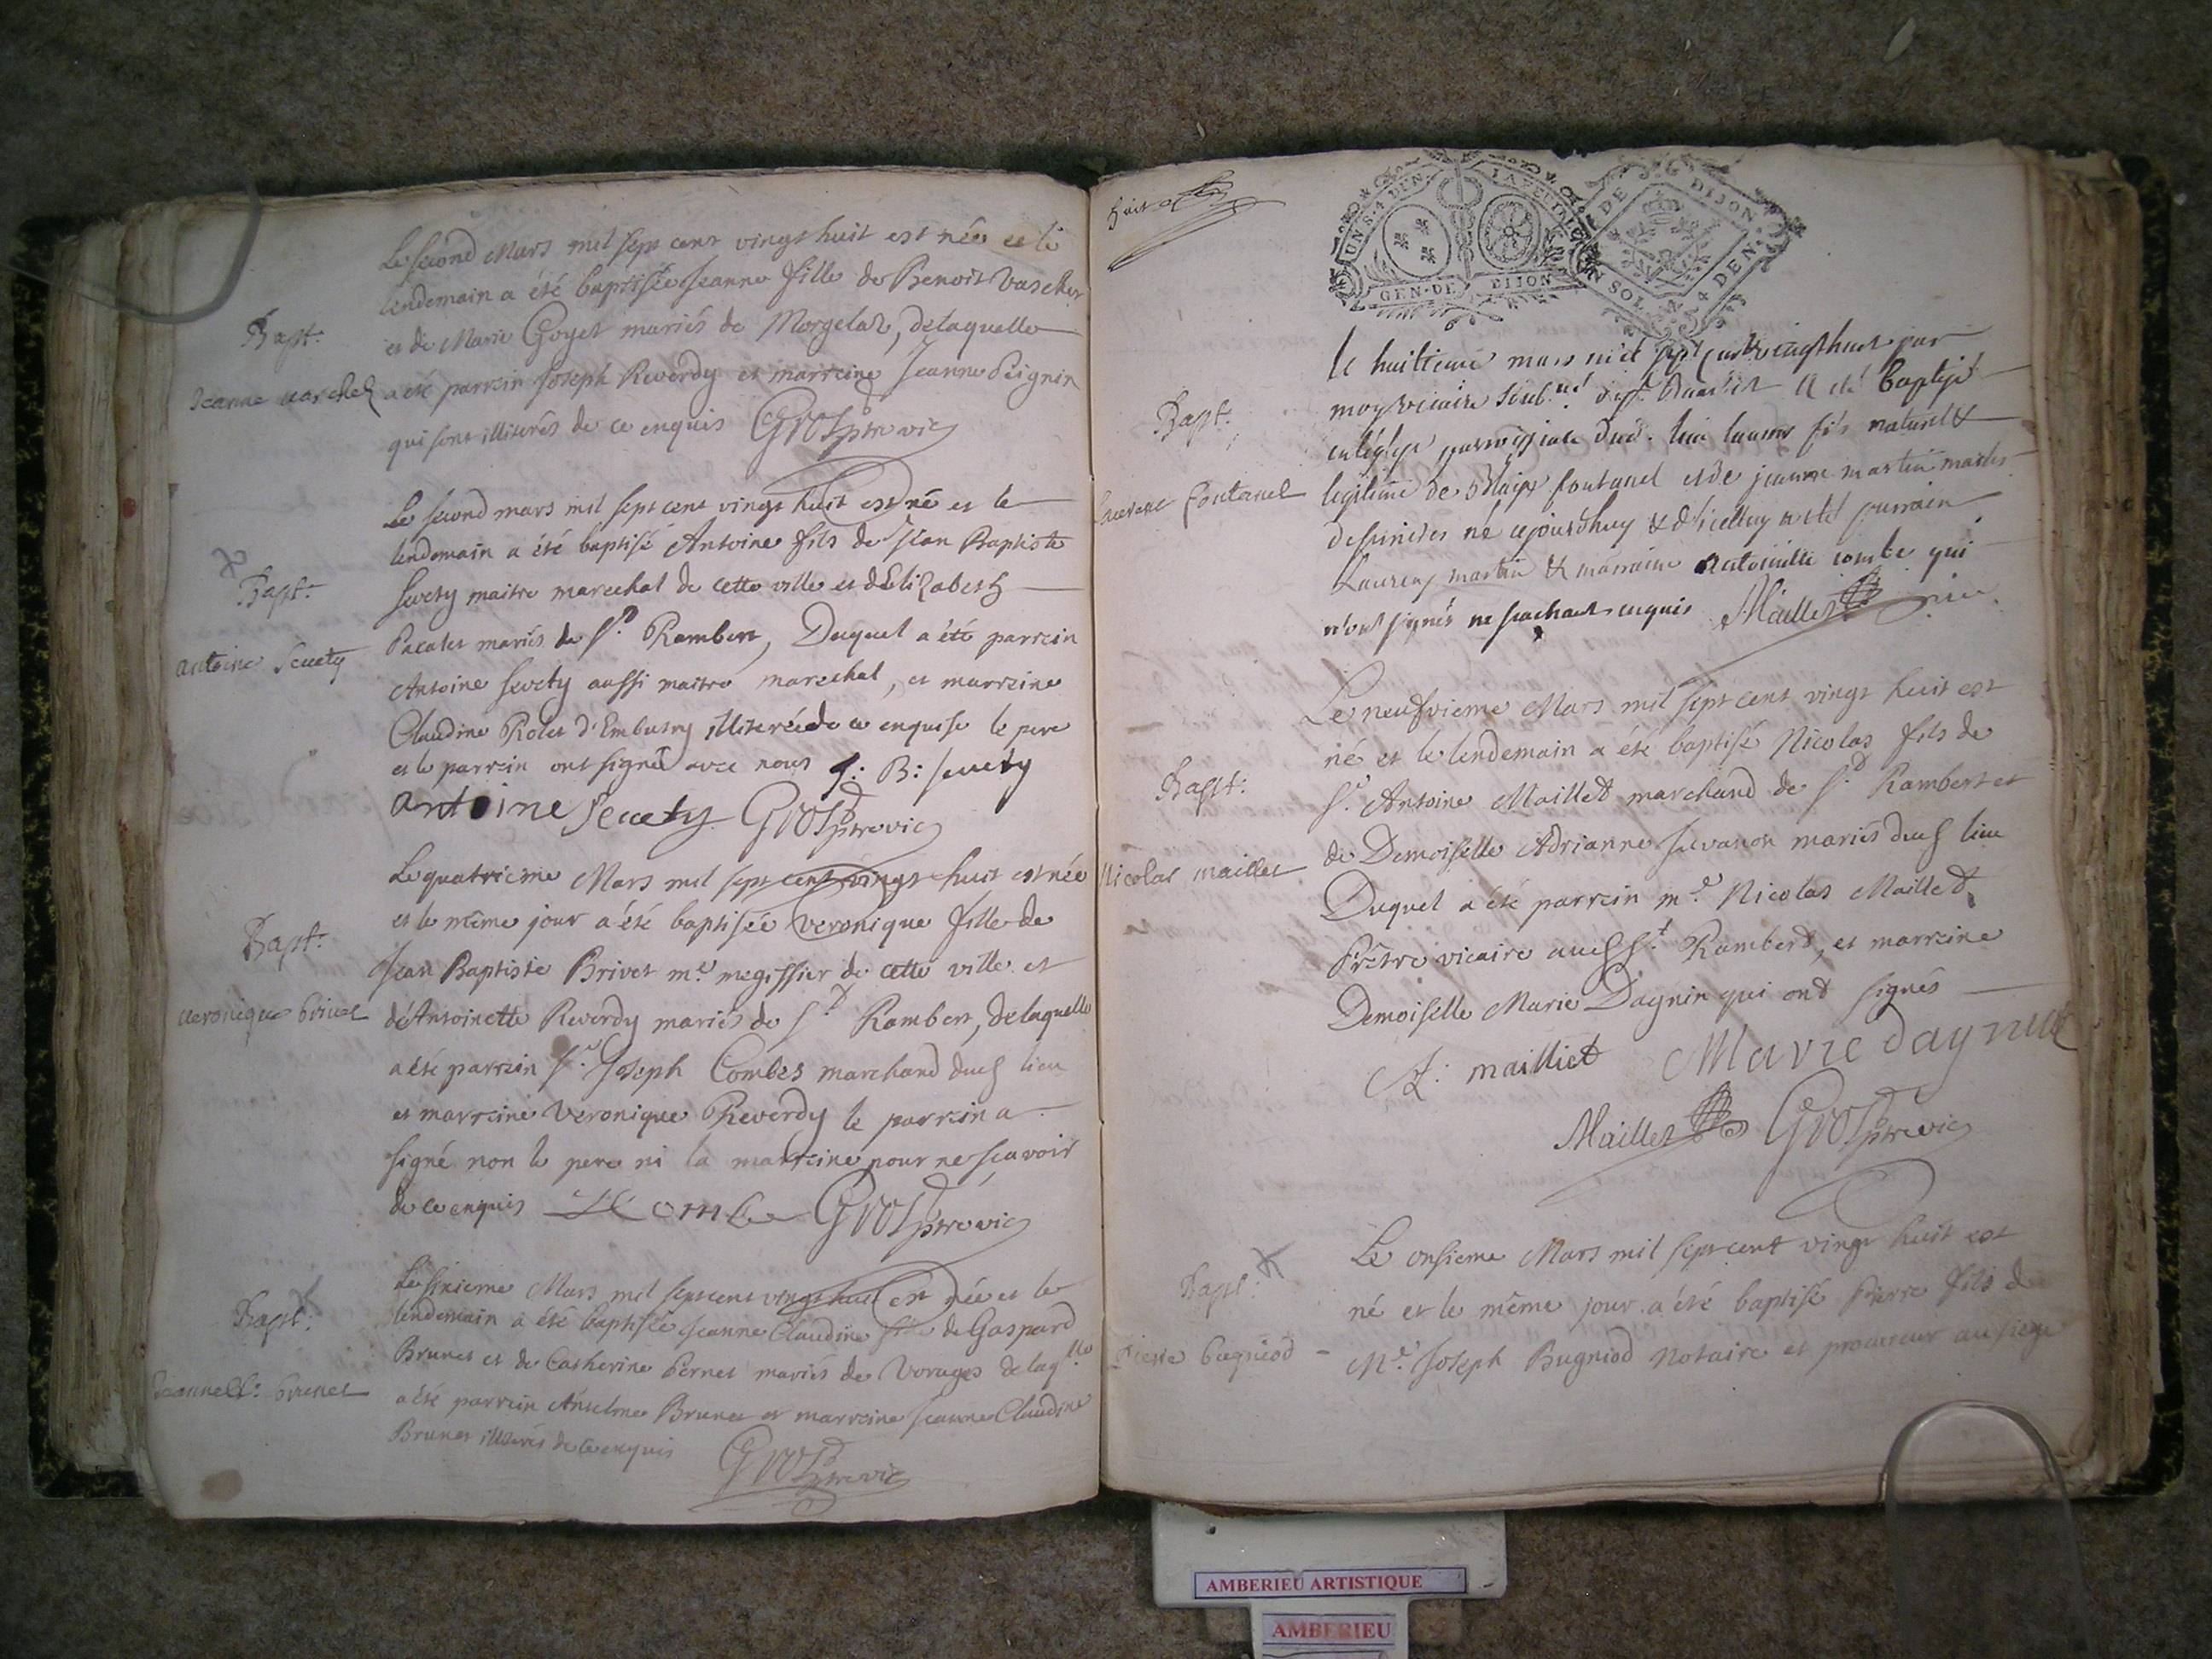 Le second Mars mil sept cent vingt huit est née et le
lendemain a été baptisée Jeanne fille de Benoit Vascher
et de Marie Goyet mariés de Morgelaz, de laquelle
Bapt.
Jeanne
a été parrein Joseph Reverdy et marreine Jeanne Peignin
qui sont illiterés de ce enquis Gros ptre vic
Le second mars mil sept cent vingt huit est né et le
lendemain a été baptisé Antoine fils de Jean Baptiste
Bapt.
Sevety maitre marechal de cette ville et d'Elizabeth
antoine Sevety
mariés de St Rambert, Duquel a été parrein
Antoine Sevety aussi maitre marechal, et marreine
Claudine Rolet d'Embutry illiterée de ce enquise le pere
et le parrein ont signé avec nous J: B: sevety
antoine Sevety Gros ptre vic
Le quatrieme Mars mil sept cent vingt huit est née
et le même jour a été baptisée Veronique fille de
Bapt.
Jean Baptiste Brivet me megissier de cette ville et
veronique brivet
d'Antoinette Reverdy mariés de St Rambert, de laquelle
a été parrein Sr. Joseph Combes marchand dud lieu
et marreine Veronique Reverdy le parrein a
signé non le pere ni la marreine pour ne sçavoir
de ce enquis Combe Gros ptre vic
Le sixieme Mars mil sept cent vingt huit est née et le
Bapt.
lendemain a été baptisée Jeanne Claudine fille de Gaspard
Brunet et de Catherine Pernet mariés de Vorages de laqlle
Jeanne Cl. brunet
a été parrein Anselme Brunet et marreine Jeanne Claudine
Brunet illiterés de ce enquis Gros ptre vic
huit
UN S. 4 DEN. LA FEUILLE
GEN. DE DIJON
DE DIJON
SOL. 4 DEN.
le huitieme mars mil sept cent vingt huit par
moy vicaire soubné a été baptisé
Bapt.
en l'eglise parroissiale dud. lieu laurens fils naturel &
Laurens fontanel
legitime de Blaise fontanel et de jeanne martin mariés
né cejourdhuy & d'icelluy a été parrain
Laurens martin & marraine antoinette combe qui
n'ont signés ne sachant enquis Maillet vic.
Le neufvieme Mars mil sept cent vingt huit est
né et le lendemain a été baptisé Nicolas fils de
Bapt.
Sr. Antoine Maillet marchand de St. Rambert et
de Demoiselle Adrianne Savarin mariés dud lieu
Nicolas maillet
Duquel a été parrein mre Nicolas Maillet
Prêtre vicaire aud St. Rambert, et marreine
Demoiselle Marie Dagnin qui ont signés
A: mailliet Marie dagnin
Maillet Gros ptre vic
Le onsieme Mars mil sept cent vingt huit est
Bapt.
né et le même jour a été baptisé Pierre fils de
pierre bugniod
Me. Joseph Bugniod Notaire et procureur au siege
AMBERIEU ARTISTIQUE
AMBERIEU